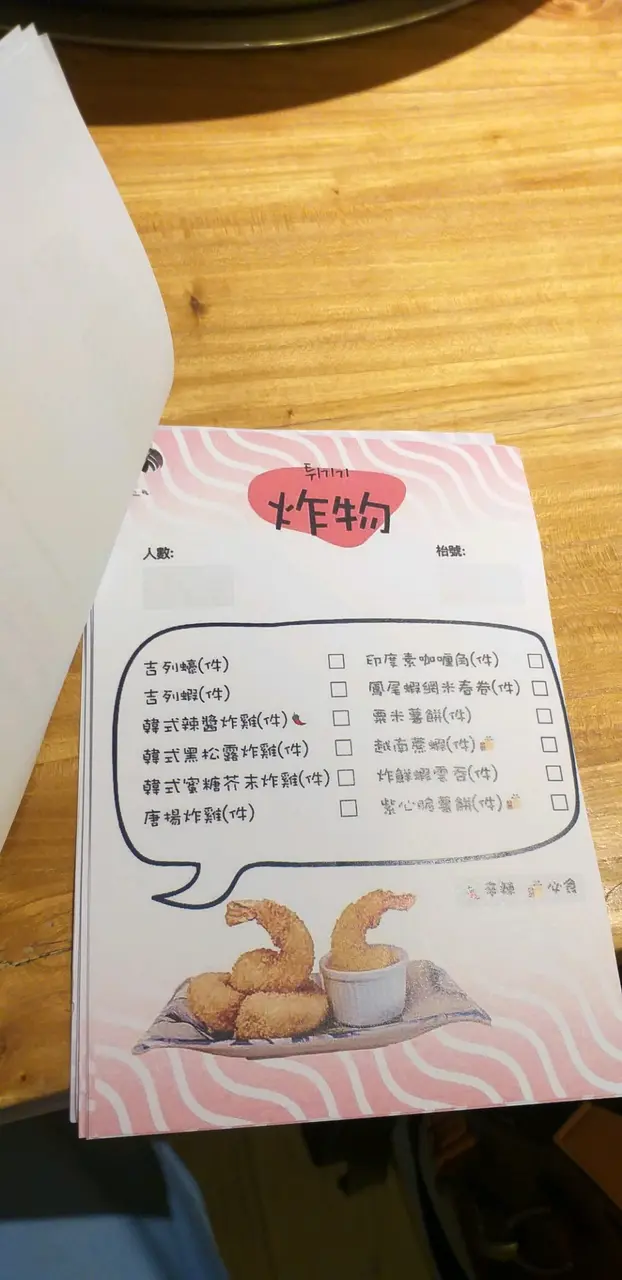 튀기기
炸物
人數:
枱號:
吉列蠔(件)
吉列蝦(件)
韓式辣醬炸雞(件)
韓式黑松露炸雞(件)
韓式蜜糖芥末炸雞(件)
唐揚炸雞(件)
印度素咖喱角(件)
鳳尾蝦網米春卷(件)
粟米薯餅(件)
越南蔗蝦(件)
炸鮮蝦雲吞(件)
紫心脆薯餅(件)
辛辣 必食